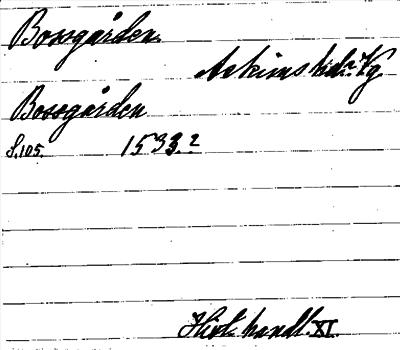 Bossgården
Askims hd. Vg
Bossgården
S. 105. 1533.?
Hist. handl. XI.